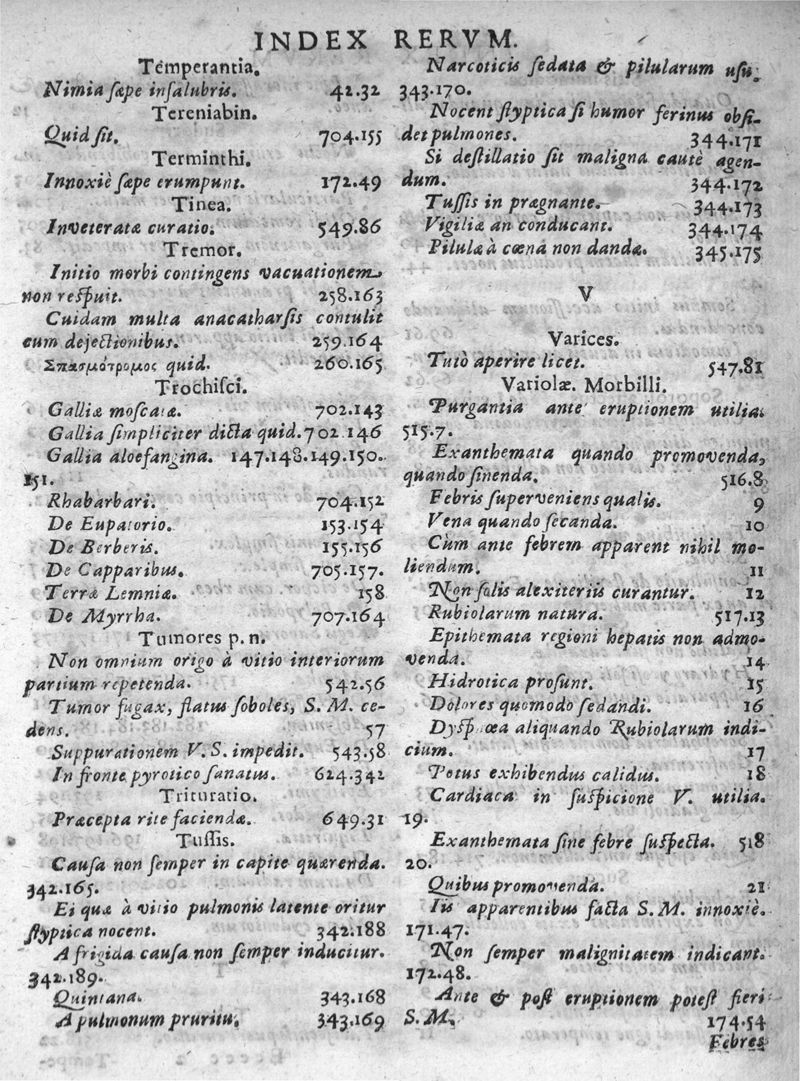 INDEX RERVM.
Temperantia.
Nimia sæpe insalubris. 42.32
Tereniabin.
Quid sit. 704.155
Terminthi.
Innoxiè sæpe erumpunt. 172.49
Tinea.
Inveteratæ curatio. 549.86
Tremor.
Initio morbi contingens vacuationem
non respuit. 258.163
Cuidam multa anacatharsis contulit
cum dejectionibus. 259.164
Σπασμότρομος quid. 260.165
Trochisci.
Galliæ moscatæ. 702.143
Gallia simpliciter dicta quid. 702 146
Gallia aloefangina. 147.148.149.150.
151.
Rhabarbari. 704.152
De Eupatorio. 153.154
De Berberis. 155.156
De Capparibus. 705.157.
Terræ Lemniæ. 158
De Myrrha. 707.164
Tumores p. n.
Non omnium origo à vitio interiorum
partium repetenda. 542.56
Tumor fugax, flatus soboles, S. M. ce-
dens. 57
Suppurationem V. S. impedit. 543.58
In fronte pyrotico sanatus. 624.342
Trituratio.
Præcepta rite facienda. 649.31
Tussis.
Causa non semper in capite quærenda.
342.165.
Ei quæ à vitio pulmonis latente oritur
styptica nocent. 342.188
A frigida causa non semper inducitur.
342.189.
Quintana. 343.168
A pulmonum pruritu. 343.169
Narcoticis sedata & pilularum usu.
343.170.
Nocent styptica si humor ferinus obsi-
det pulmones. 344.171
Si destillatio sit maligna cautè agen-
dum. 344.172
Tussis in prægnante. 344.173
Vigiliæ an conducant. 344.174
Pilulæ à cœna non dandæ. 345.175
V
Varices.
Tutò aperire licet. 547.81
Variolæ. Morbilli.
Purgantia ante eruptionem utilia.
515.7.
Exanthemata quando promovenda,
quando sinenda. 516.8
Febris superveniens qualis. 9
Vena quando secanda. 10
Cùm ante febrem apparent nihil mo-
liendum. 11
Non solis alexiteriis curantur. 12
Rubiolarum natura. 517.13
Epithemata regioni hepatis non admo-
venda. 14
Hidrotica prosunt. 15
Dolores quomodo sedandi. 16
aliquando Rubiolarum indi-
cium. 17
Potus exhibendus calidus. 18
Cardiaca in suspicione V. utilia.
19.
Exanthemata sine febre suspecta. 518
20.
Quibus promovenda. 21
Iis apparentibus facta S. M. innoxiè.
171.47.
Non semper malignitatem indicant.
172.48.
Ante & post eruptionem potest fieri
S. M. 174.54
Febres